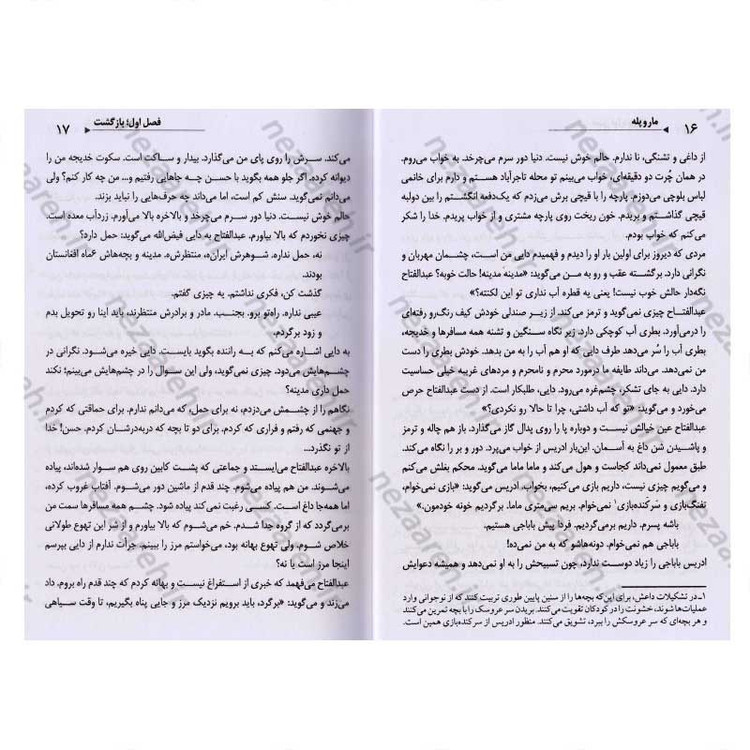 ۱۶ مار و پله
از داغی و تشنگی، نا ندارم. حالم خوش نیست. دنیا دور سرم می‌چرخد. به خواب می‌روم.
در همان چُرت دو دقیقه‌ای، خواب می‌بینم تو محله تاجرآباد هستم و دارم برای خانمی
لباس بلوچی می‌دوزم. پارچه را با قیچی برش می‌زدم که یک‌دفعه انگشتم را بین دولبه
قیچی گذاشتم و بریدم. خون ریخت روی پارچه مشتری و از خواب پریدم. خدا را شکر
می‌کنم که خواب بودم.
مردی که دیروز برای اولین بار او را دیدم و فهمیدم دایی من است، چشمان مهربان و
نگرانی دارد. برگشته عقب و رو به من می‌گوید: «مدینه مدینه! حالت خوبه؟ عبدالفتاح
نگه‌دار حالش خوب نیست! یعنی یه قطره آب نداری تو این لکنته؟»
عبدالفتاح چیزی نمی‌گوید و ترمز می‌کند. از زیر صندلی خودش کیف رنگ‌ورو رفته‌ای
را درمی‌آورد. بطری آب کوچکی دارد. زیر نگاه سنگین و تشنه همه مسافرها و خدیجه،
بطری آب را سُر می‌دهد طرف دایی که او هم آب را به من بدهد. خودش بطری را دست
من نمی‌دهد. می‌داند طایفه ما درمورد محرم و نامحرم و مردهای غریبه خیلی حساسیت
دارد. دایی به جای تشکر، چشم‌غره می‌رود. دایی، طلبکار است. از دست عبدالفتاح حرص
می‌خورد و می‌گوید: «تو که آب داشتی، چرا تا حالا رو نکردی؟»
عبدالفتاح عین خیالش نیست و دوباره پا را روی پدال گاز می‌گذارد. باز هم چاله و ترمز
و پاشیدن شن داغ به آسمان. این‌بار ادریس از خواب می‌پرد. دور و بر را نگاه می‌کند.
طبق معمول نمی‌داند کجاست و هول می‌کند و ماما ماما می‌گوید. محکم بغلش می‌کنم
و می‌گویم چیزی نیست، داریم بازی می‌کنیم، بخواب. ادریس می‌گوید: «بازی نمی‌خوام.
تفنگ‌بازی و سَرکَنده‌بازی۱ نمی‌خوام. بریم سی‌متری ماما. برگردیم خونه خودمون.»
باشه پسرم. داریم برمی‌گردیم. فردا پیش باباجی هستیم.
باباجی هم نمی‌خوام. دونه‌هاشو که به من نمی‌ده!
ادریس باباجی را زیاد دوست ندارد، چون تسبیحش را به او نمی‌دهد و همیشه دعوایش
۱ـ در تشکیلات داعش، برای این‌که بچه‌ها را از سنین پایین طوری تربیت کنند که از نوجوانی وارد
عملیات‌ها شوند، خشونت را در کودکان تقویت می‌کنند. بریدن سر عروسک را با بچه تمرین می‌کنند
و هر بچه‌ای که سر عروسکش را ببرد، تشویق می‌کنند. منظور ادریس از سرکنده‌بازی همین است.
فصل اول؛ بازگشت ۱۷
می‌کند. سرش را روی پای من می‌گذارد. بیدار و ساکت است. سکوت خدیجه من را
دیوانه کرده. اگر جلو همه بگوید با حسن چه جاهایی رفتیم و... من چه کار کنم؟ ولی
نمی‌گوید. سنش کم است، اما می‌داند چه حرف‌هایی را نباید بزند.
حالم خوش نیست. دنیا دور سرم می‌چرخد و بالاخره بالا می‌آورم. زردآب معده است.
چیزی نخوردم که بالا بیاورم. عبدالفتاح به دایی فیض‌الله می‌گوید: حمل دارد؟
نه، حمل نداره. شوهرش ایران‌ه، منتظرش‌ه. مدینه و بچه‌هاش ۶ماه افغانستان
بودند.
گذشت کن، فکری نداشتم. یه چیزی گفتم.
عیبی نداره. راه‌تو برو. بجنب. مادر و برادرش منتظرند، باید اینا رو تحویل بدم
و زود برگردم.
به دایی اشاره می‌کنم که به راننده بگوید بایست. دایی خیره می‌شود. نگرانی در
چشم‌هایش می‌دود. چیزی نمی‌گوید، ولی این سوال را در چشم‌هایش می‌بینم؛ نکند
حمل داری مدینه؟
نگاهم را از چشمش می‌دزدم، نه برای حمل، که می‌دانم ندارم. برای حماقتی که کردم
و جهنمی که رفتم و فراری که کردم. برای دو تا بچه که دربه‌درشان کردم. حسن! خدا
از تو نگذرد...
بالاخره عبدالفتاح می‌ایستد و جماعتی که پشت کابین روی هم سوار شده‌اند، پیاده
می‌شوند. من هم پیاده می‌شوم. چند قدم از ماشین دور می‌شوم. آفتاب غروب کرده،
اما همه‌جا داغ است. کسی رغبت نمی‌کند پیاده شود. چشم همه مسافرها سمت من
برمی‌گردد که از گروه جدا شدم. خم می‌شوم که بالا بیاورم و از شر این تهوع طولانی
خلاص شوم. ولی تهوع بهانه بود، می‌خواستم مرز را ببینم. جرأت ندارم از دایی بپرسم
اینجا مرز است یا نه؟
عبدالفتاح می‌فهمد که خبری از استفراغ نیست و بهانه کردم که چند قدم راه بروم. داد
می‌زند و می‌گوید: «برگرد، باید برویم نزدیک مرز و جایی پناه بگیریم، تا وقت سیاهی
nezaareh.ir